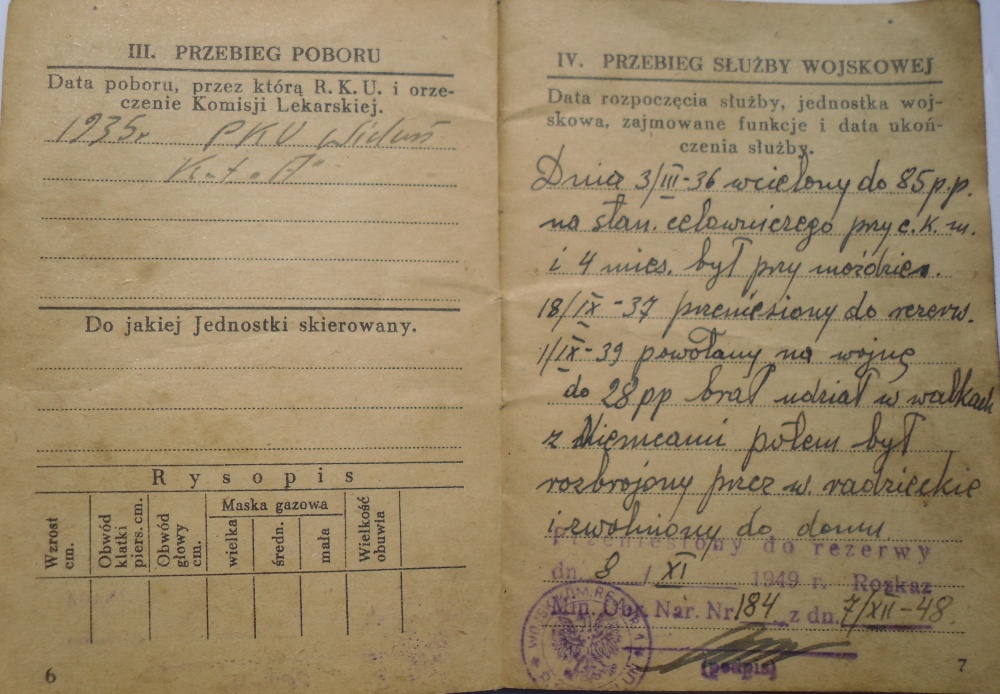 III. PRZEBIEG POBORU
Data poboru, przez którą R. K. U. i orze-
czenie Komisji Lekarskiej.
1935r PKU Wieluń
Kat „A"
Do jakiej Jednostki skierowany.
Rysopis
Wzrost cm.
Obwód klatki piers. cm.
Obwód głowy cm.
Maska gazowa
wielka
średn.
mała
Wielkość obuwia
6
IV. PRZEBIEG SŁUŻBY WOJSKOWEJ
Data rozpoczęcia służby, jednostka woj-
skowa, zajmowane funkcje i data ukoń-
czenia służby.
Dnia 3/III-36 wcielony do 85 p.p.
na stan. celowniczego przy c. k. m.
i 4 mies. był przy moździeż.
18/IX-37 przeniesiony do rezerw.
1/IX-39 powołany na wojnę
do 28 pp brał udział w walkach
z Niemcami potem był
rozbrojony przez w. radzieckie
i zwolniony do domu
Przeniesiony do rezerwy
dn. 8 / XI 1949 r. Rozkaz
Min. Obr. Nar. Nr 184 z dn. 7/XII-48.
(podpis)
7